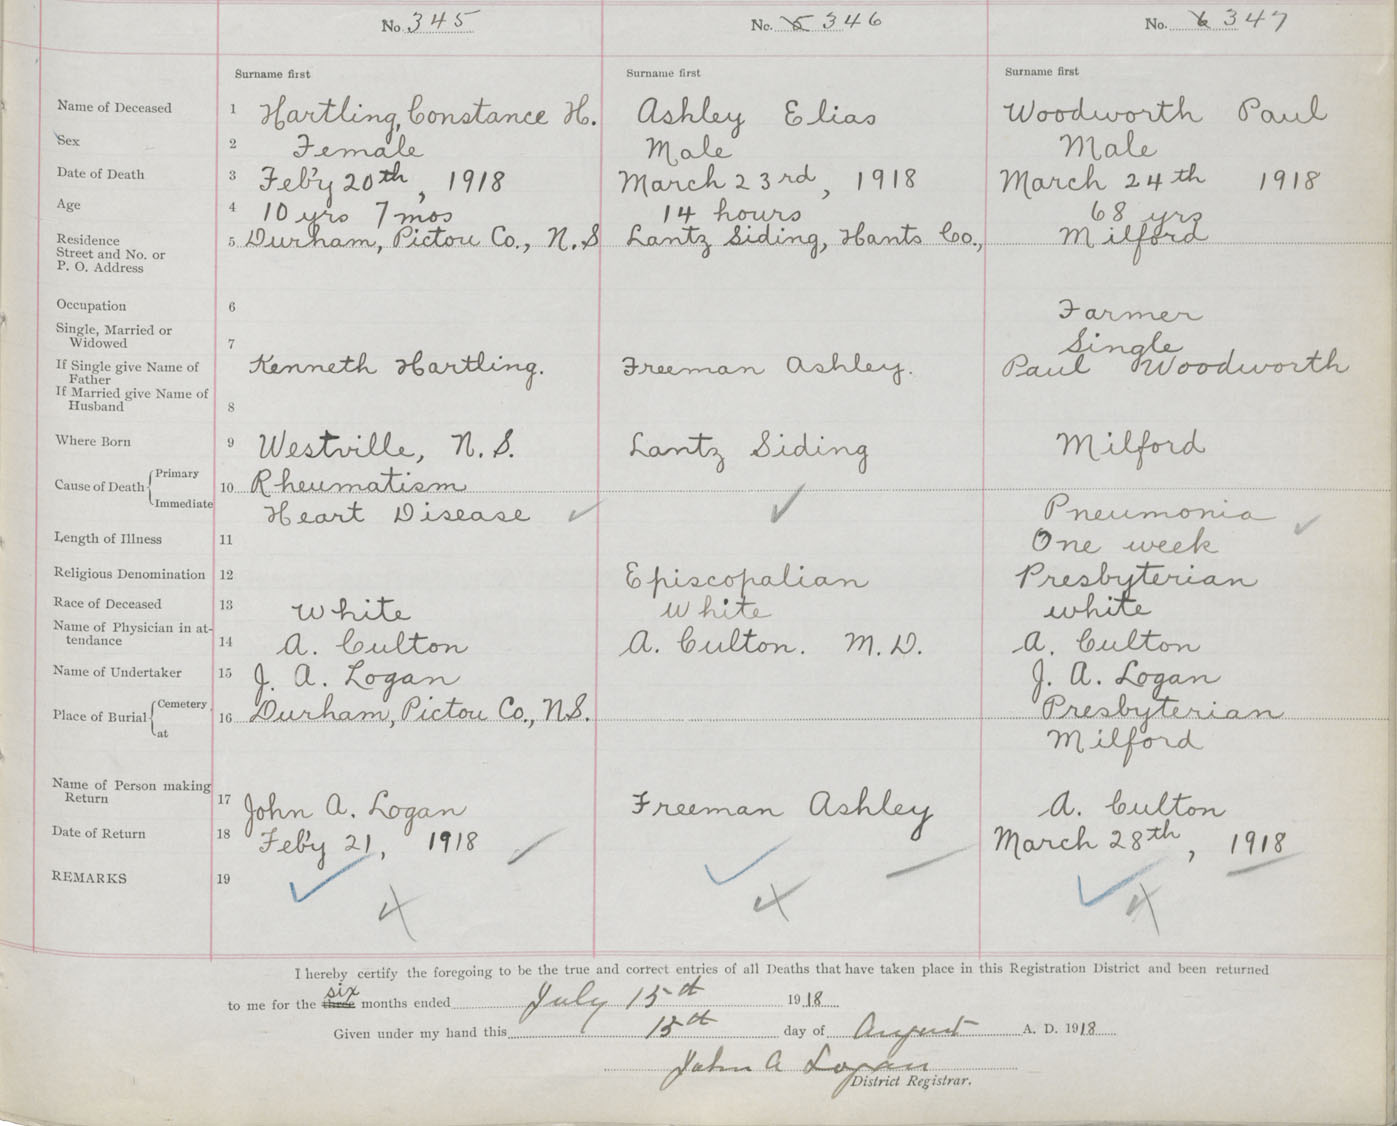 No. 345 No. 5 346 No. 6 347
Surname first Surname first Surname first
Name of Deceased 1 Hartling, Constance H. Ashley Elias Woodworth Paul
Sex 2 Female Male Male
Date of Death 3 Feb'y 20th, 1918 March 23rd, 1918 March 24th 1918
Age 4 10 yrs 7 mos 14 hours 68 yrs
Residence 5 Durham, Pictou Co., N.S Lantz Siding, Hants Co., Milford
Street and No. or
P. O. Address
Occupation 6 Farmer
Single, Married or
Widowed 7 Single
If Single give Name of Kenneth Hartling. Freeman Ashley. Paul Woodworth
Father
If Married give Name of
Husband 8
Where Born 9 Westville, N.S. Lantz Siding Milford
Cause of Death Primary 10 Rheumatism
Immediate Heart Disease Pneumonia
Length of Illness 11 One week
Religious Denomination 12 Episcopalian Presbyterian
Race of Deceased 13 White White white
Name of Physician in at-
tendance 14 A. Culton A. Culton. M.D. A. Culton
Name of Undertaker 15 J. A. Logan J. A. Logan
Place of Burial Cemetery 16 Durham, Pictou Co., N.S. Presbyterian
at Milford
Name of Person making
Return 17 John A. Logan Freeman Ashley A. Culton
Date of Return 18 Feb'y 21, 1918 March 28th, 1918
REMARKS 19
I hereby certify the foregoing to be the true and correct entries of all Deaths that have taken place in this Registration District and been returned
to me for the three six months ended July 15th 1918
Given under my hand this 15th day of August A. D. 1918
John A Logan
District Registrar.